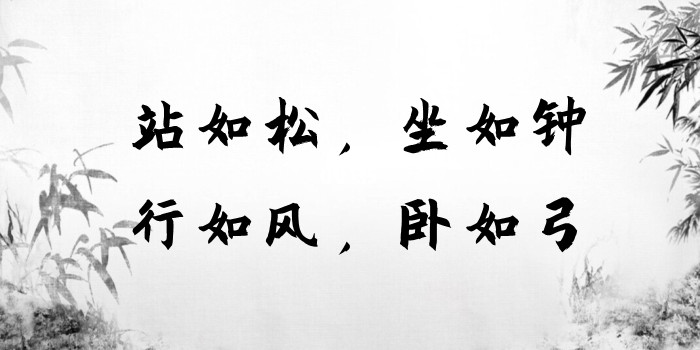 站如松，坐如钟
行如风，卧如弓